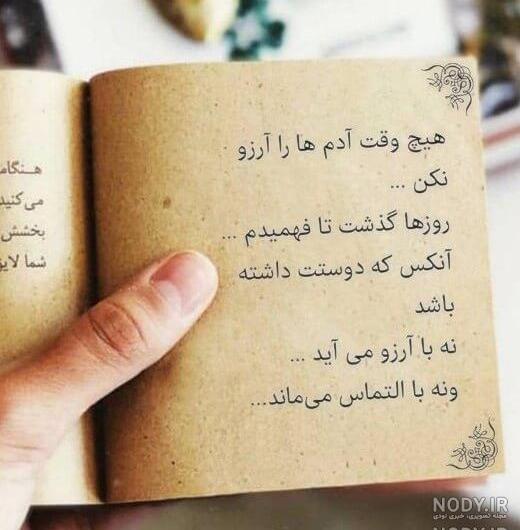 هیچ وقت آدم ها را آرزو
نکن ...
روزها گذشت تا فهمیدم ...
آنکس که دوستت داشته
باشد
نه با آرزو می آید ...
ونه با التماس می‌ماند...
هـنگام
می‌کنید
بخشش
شما لایق
NODY.IR
مجله تصویری، خبری نودی